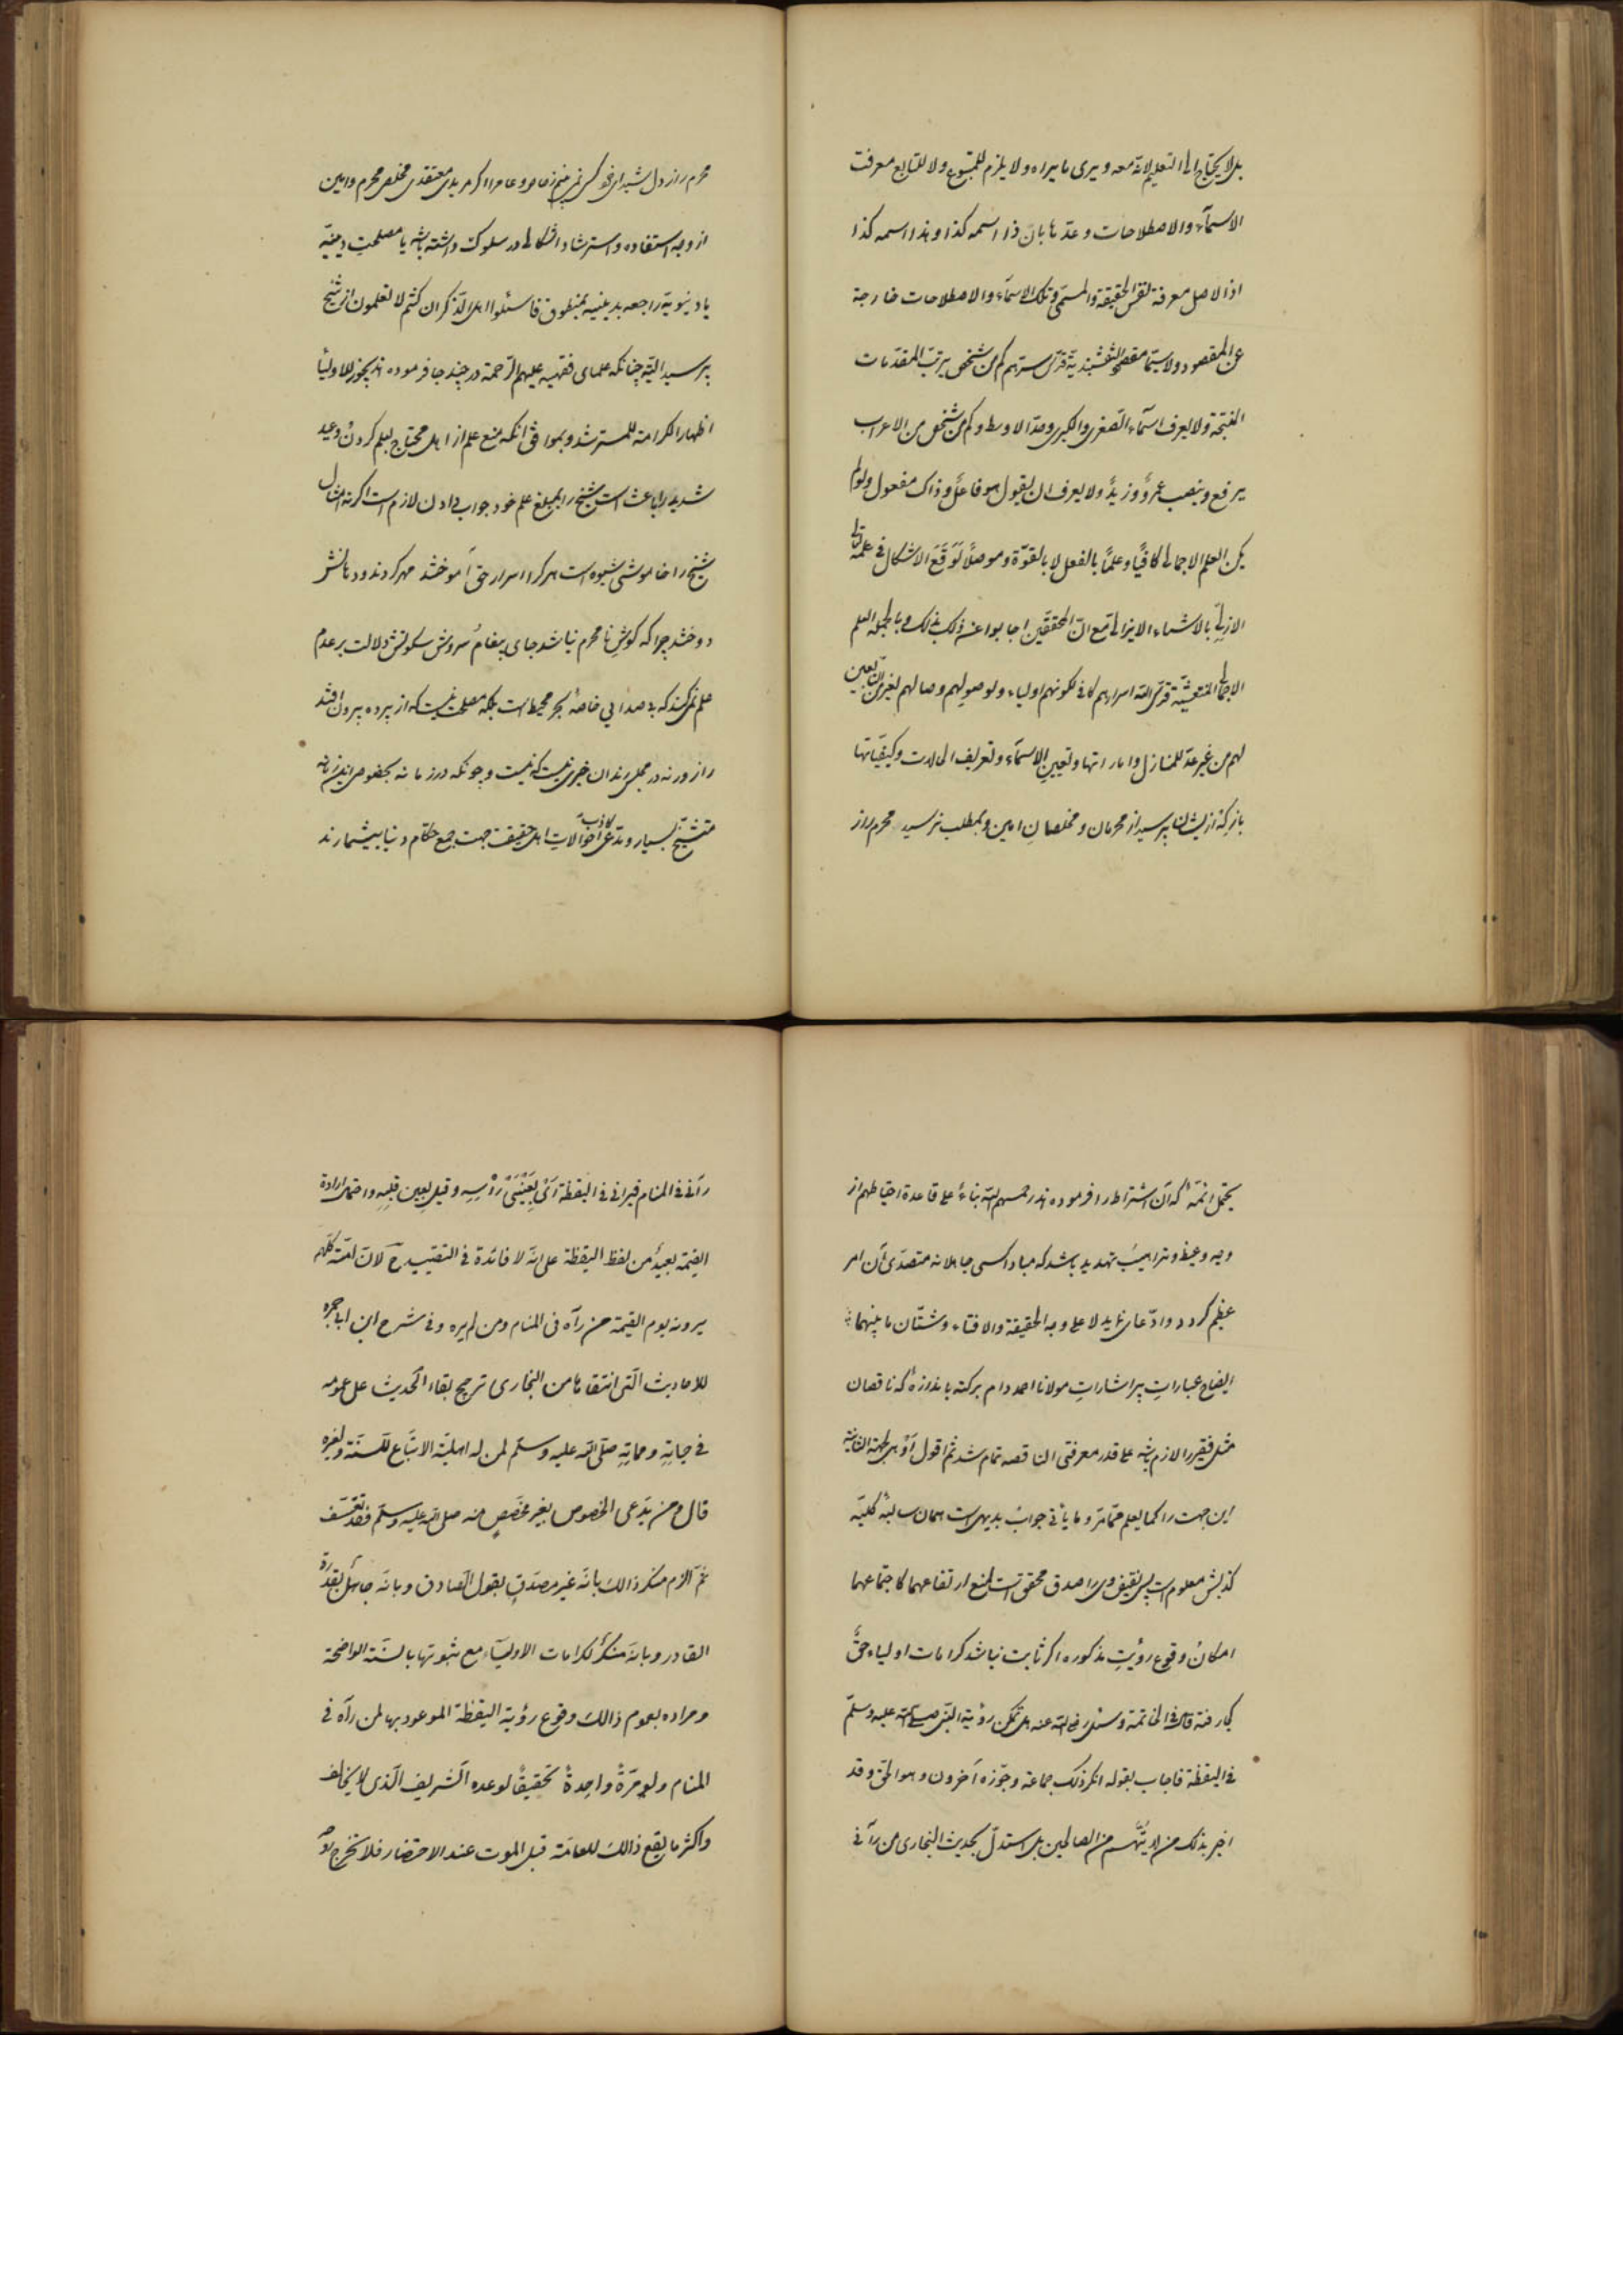 بل لا يحتاج الى التعليم لانّه معه ويرى ما يراه ولا يلزم للمتبوع ولا للتابع معرفت
الاسمآء والاصطلاحات وعدّها بانّ ذا اسمه كذا وهذا اسمه كذا
اذا لاصل معرفة نفس الحقيقة والمسمّى وتلك الاسمآء والاصطلاحات خارجة
عن المقصود ولا سيّما مقصد النقشبنديّة قدّس سرّهم كم من شخص يرتّب المقدّمات
النتيجة ولا يعرف اسمآء الصّغرى والكبرى وحدّ الاوسط وكم من شخص من الاعراب
يرفع وينصب عمرًو وزيدٌ ولا يعرف ان يقول هو فاعلٌ وذاك مفعول ولو لم
يكن العلم الاجمالى كافيًا وعلمًا بالفعل لا بالقوّة وموصلًا لَوَقَعَ الاشكال فى علمه تعالى
الازلىّ بالاشياء الايزالى مع انّ المحققين اجابوا عن ذلك بذلك وبالجمله العلم
الاجمالى قدّس اللّه اسرارهم كاف لكونهم اولياء ولوصولهم وصالهم لغيرهم
لهم من غير عدّ للمنازل وامارتها وتعيين الاسمآء وتعريف الحالات وكيفيّاتها
باز كه از ايشان پرسيد از محرمان ومخلصان امين وبمطلب نرسيد محرم راز
محرم راز دل شيداى خود كس نمى بينم ز خاص و عام را اكر مريدى معتقدى مخلص محرم وامين
از وجه استفاده واسترشاد اشكالى در سلوك داشته باشد يا مصلحت دينيّه
يا دنيويّه راجعه بدينيه بمنطوق فاسئلوا اهل الذّكر ان كنتم لا تعلمون از شيخ
پرسيد البتّه چنانكه علماى فقهيه عليهم الرّحمة در چند جا فرموده اند يجوز للاوليآء
اظهار الكرامته للمسترشد وبموافق انكه منع علم از اهل محتاج بعلم كردن وعيد
شديد را باعث است شيخ را بمبلغ علم خود جواب دادن لازم است اكرنه امثال
شيخ را خاموشى شيوه است هر كرا اسرار حق آموختند مهر كردند ودهانش
دوختند چرا كه كوش نا محرم نباشد جاى پيغام سروش سكوتش دلالت بر عدم
علم نمى كند كه بى صدايى خاصهٔ بحر محيط است بلكه مصلحت نيست كه از پرده بيرون افتد
راز ورنه در مجلس رندان خبرى نيست كه نيست وچونكه در زمانه بخصوص اين زمانه
متشيّخ بسيار ومدّعى كاذب احوالات اهل حقيقت جهت جمع حطام دنيا بيشمارند
يحتمل ائمّهٔ كه آن اشتراط را فرموده اند رحمهم اللّه بناءً على قاعدة احتياطهم از
وجه وعيد وترهيب تهديد باشد كه مبادا كسى جاهلانه متصدّى آن امر
عظيم كردد وادّعاى نمايد لا على وجه الحقيقة والافتاء وشتّان ما بينهما
ايضاح عبارات پر اشارات مولانا احمد دام بركته باندازهٔ كه ناقصان
مثل فقير را لازم باشد على قدر معرفتى الناقصه تمام شد ثم اقول
اين جهت را كما يعلم ممّا مرّ وما يأتى جواب بديهى است همان سالبهٔ كليّه
كذبش معلوم است پس نقيض وى را صدق محقق است لمنع ارتفاعهما كاجتماعهما
امكان وقوع رؤيت مذكوره اكر ثابت نباشد كرامات اولياء حقّ
كجا رفته قال فى الخاتمة وسئل رضى اللّه عنه هل تمكن رؤية النّبى صلى اللّه عليه وسلّم
فى اليقظة فاجاب بقوله انكر ذلك جماعة وجوّزه آخرون وهو الحق وقد
اخبر بذلك من لا يتّهم من الصالحين بل استدلّ بحديث البخارى من رآنى
رآنى فى المنام فيرانى فى اليقظة اَىْ بِعَيْنَىْ رَأسِهِ وقيل بعين قلبه واحتمال ارادة
القيمة بعيدٌ من لفظ اليقظة على انّه لا فائدة فى التقييد ح لانّ امّته كلّهم
يرونه يوم القيمة من رآه فى المنام ومن لم يره وفى شرح ابن ابى جمره
للاحاديث الّتى انتقاها من البخارى ترجيح بقاء الحديث على عمومه
فى حياتِهِ ومماتِهِ صلّى اللّه عليه وسلّم لمن له اهليّة الاتبّاع للسنّة ولغيره
قال ومن يدّعى الخصوص بغير مخصّصٍ منه صلى اللّه عليه وسلّم فقد تعسّف
ثمّ الزم منكر ذالك بانّه غير مصدّقٍ بقول الصّادق وبانّه جاهلٌ بقدرة
القادر وبانّه منكرٌ لكرامات الاوليآء مع ثبوتها بالسنّة الواضحة
ومراده بعموم ذالك وقوع رؤية اليقظة الموعود بها لمن رآه فى
المنام ولو مرّةً واحِدةً تحقيقًا لوعده الشّريف الّذى لا يخلف
واكثر ما يقع ذالك للعامّة قبل الموت عند الاحتضار فلا تخرج